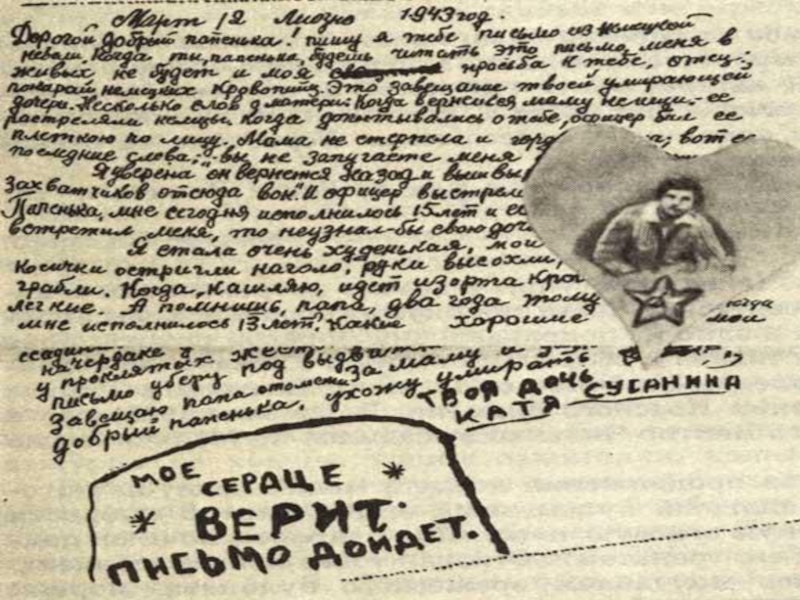 Март, 12 Лиозно 1943 год.
Дорогой добрый папенька! пишу я тебе письмо из немецкой
неволи, Когда ты, папенька, будешь читать это письмо, меня в
живых не будет и моя просьба к тебе, отец;
покарай немецких кровопийц. Это завещание твоей умирающей
дочери. Несколько слов о матери: Когда вернешся маму не ищи. ее
растреляли немцы. Когда допытывались о тебе, офицер бил ее
плеткою по лицу, Мама не стерпела и горд а; вот ее
последние слова; "вы не запугаете меня
Я уверена он вернется назад и вышвы
захватчиков отсюда вон". И офицер выстрел
Папенька, мне сегодня исполнилось 15 лет и ес
встретил меня, то неузнал-бы свою доч
Я стала очень худенькая, мои
косички остригли наголо, руки высохли,
грабли. Когда, кашляю, идет изорта кро
легкие. А помнишь, папа, два года тому
мне исполнилось 13 лет? Какие хорошие мои
начердаке
у проклятых
письмо уберу под
Завещаю папа отомсти за маму и
добрый папенька, ухожу умирать
твоя дочь
Катя Сусанина
МОЕ
СЕРДЦЕ
ВЕРИТ.
ПИСЬМО ДОЙДЕТ.